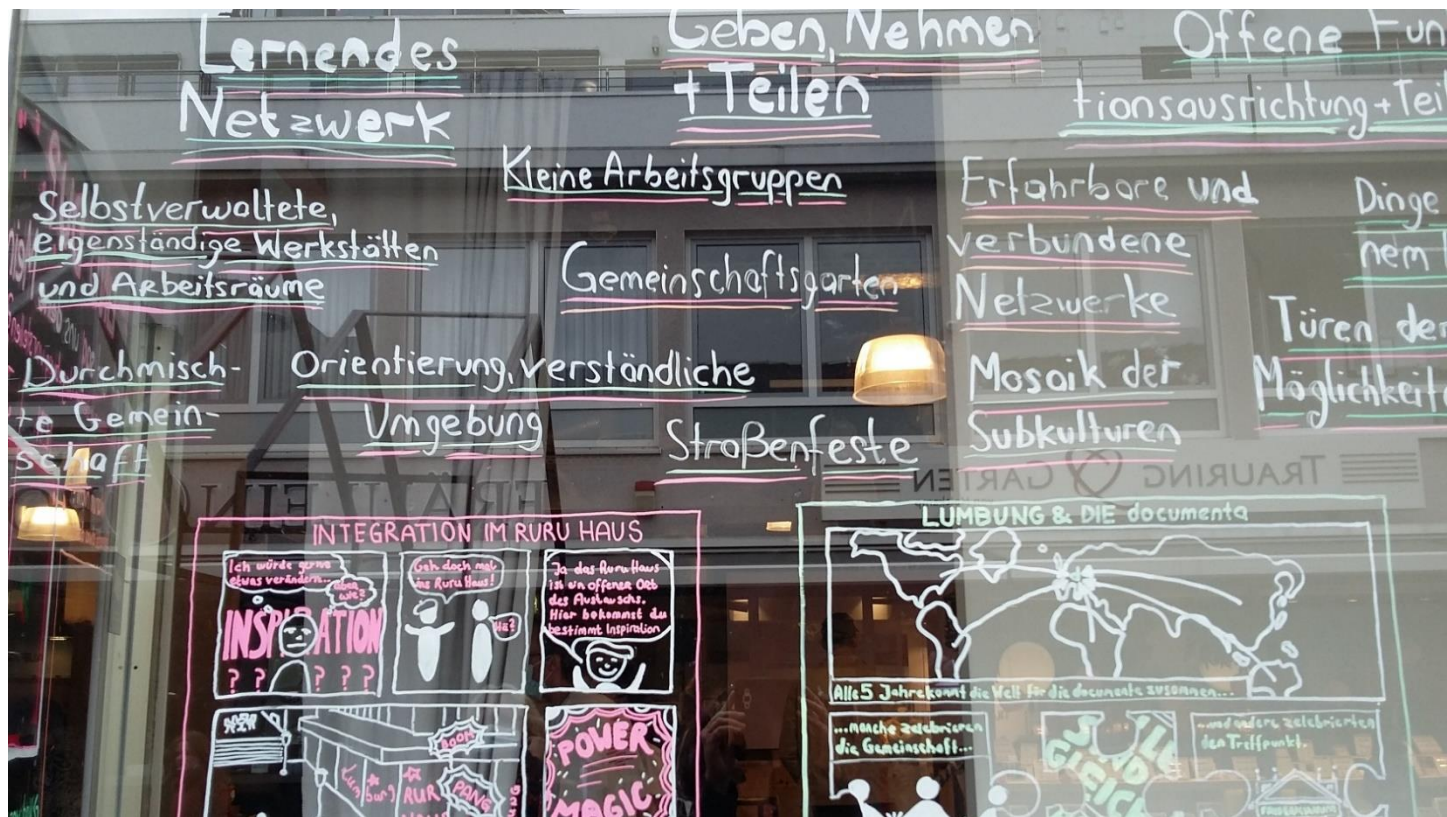 Lernendes
Netzwerk
Geben, Nehmen
+ Teilen
Offene Fun
tionsausrichtung + Tei
Kleine Arbeitsgruppen
Selbstverwaltete,
eigenständige Werkstätten
und Arbeitsräume
Gemeinschaftsgarten
Erfahrbare und
verbundene
Netzwerke
Dinge
nem
Türen der
Möglichkeit
Durchmisch-
te Gemein-
schaft
Orientierung, verständliche
Umgebung
Straßenfeste
Mosaik der
Subkulturen
TRAURING GARTEN
INTEGRATION IM RURU HAUS
Ich würde gerne
etwas verändern...
Aber
wie?
INSPIRATION
? ? ? ? ?
Geh doch mal
ins Ruru Haus!
Hä?
Ja das Ruru Haus
ist ein offener Ort
des Austauschs.
Hier bekommst du
bestimmt Inspiration
BOOM
PANG
RUR
POWER
MAGIC
LUMBUNG & DIE documenta
Alle 5 Jahre kommt die Welt für die documenta zusammen...
...manche zelebrieren
die Gemeinschaft...
...und andere zelebrierten
den Treffpunkt.